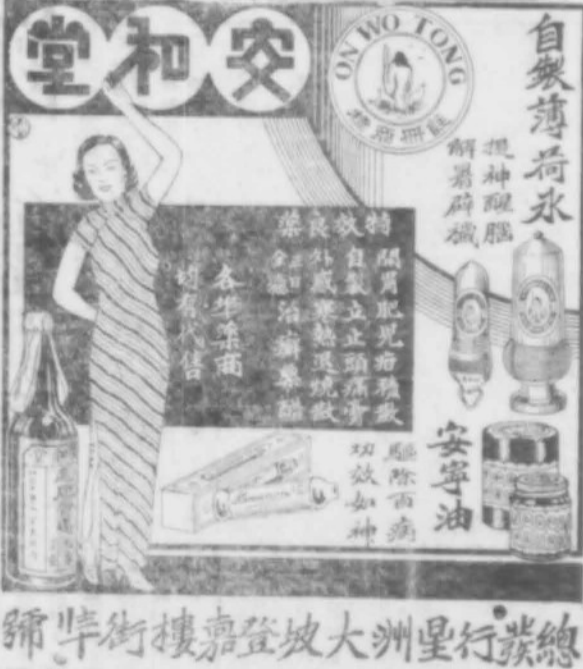 安和堂
ON WO TONG
註冊商標
自製薄荷冰
提神醒腦
解暑辟穢
特效良藥
開胃肥兒疳積散
自製立止頭痛膏
外感寒熱退燒散
治癬藥醋
各埠藥商
均有代售
安寧油
驅除百病
功效如神
總發行星洲大坡登嘉樓街 號